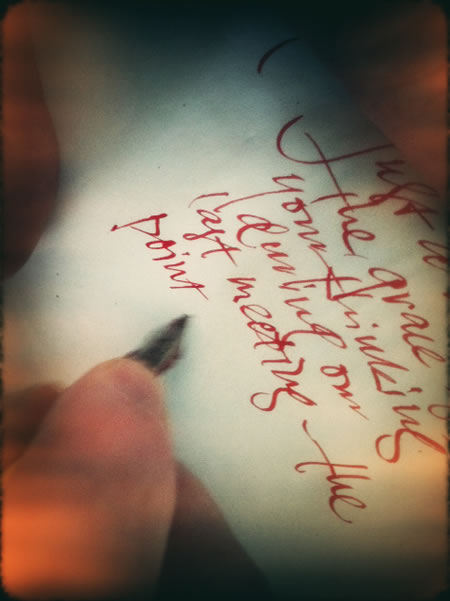 Just
the grace
your thinking
during our
last meeting - the
point